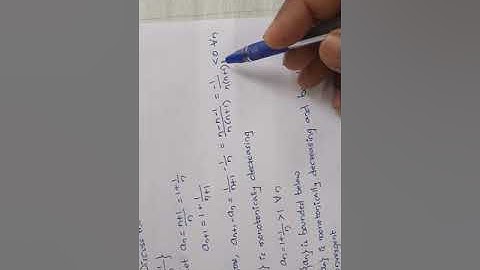 Discuss
}
et aₙ = n+1/n = 1+1/n
aₙ₊₁ = 1+1/n+1
aₙ₊₁-aₙ = 1/n+1 - 1/n = n-n-1/n(n+1) = -1/n(n+1) <0 ∀n
} is monotonically decreasing
aₙ = 1+1/n >1 ∀n
an} is bounded below
an} is monotonically decreasing and b
nvergent